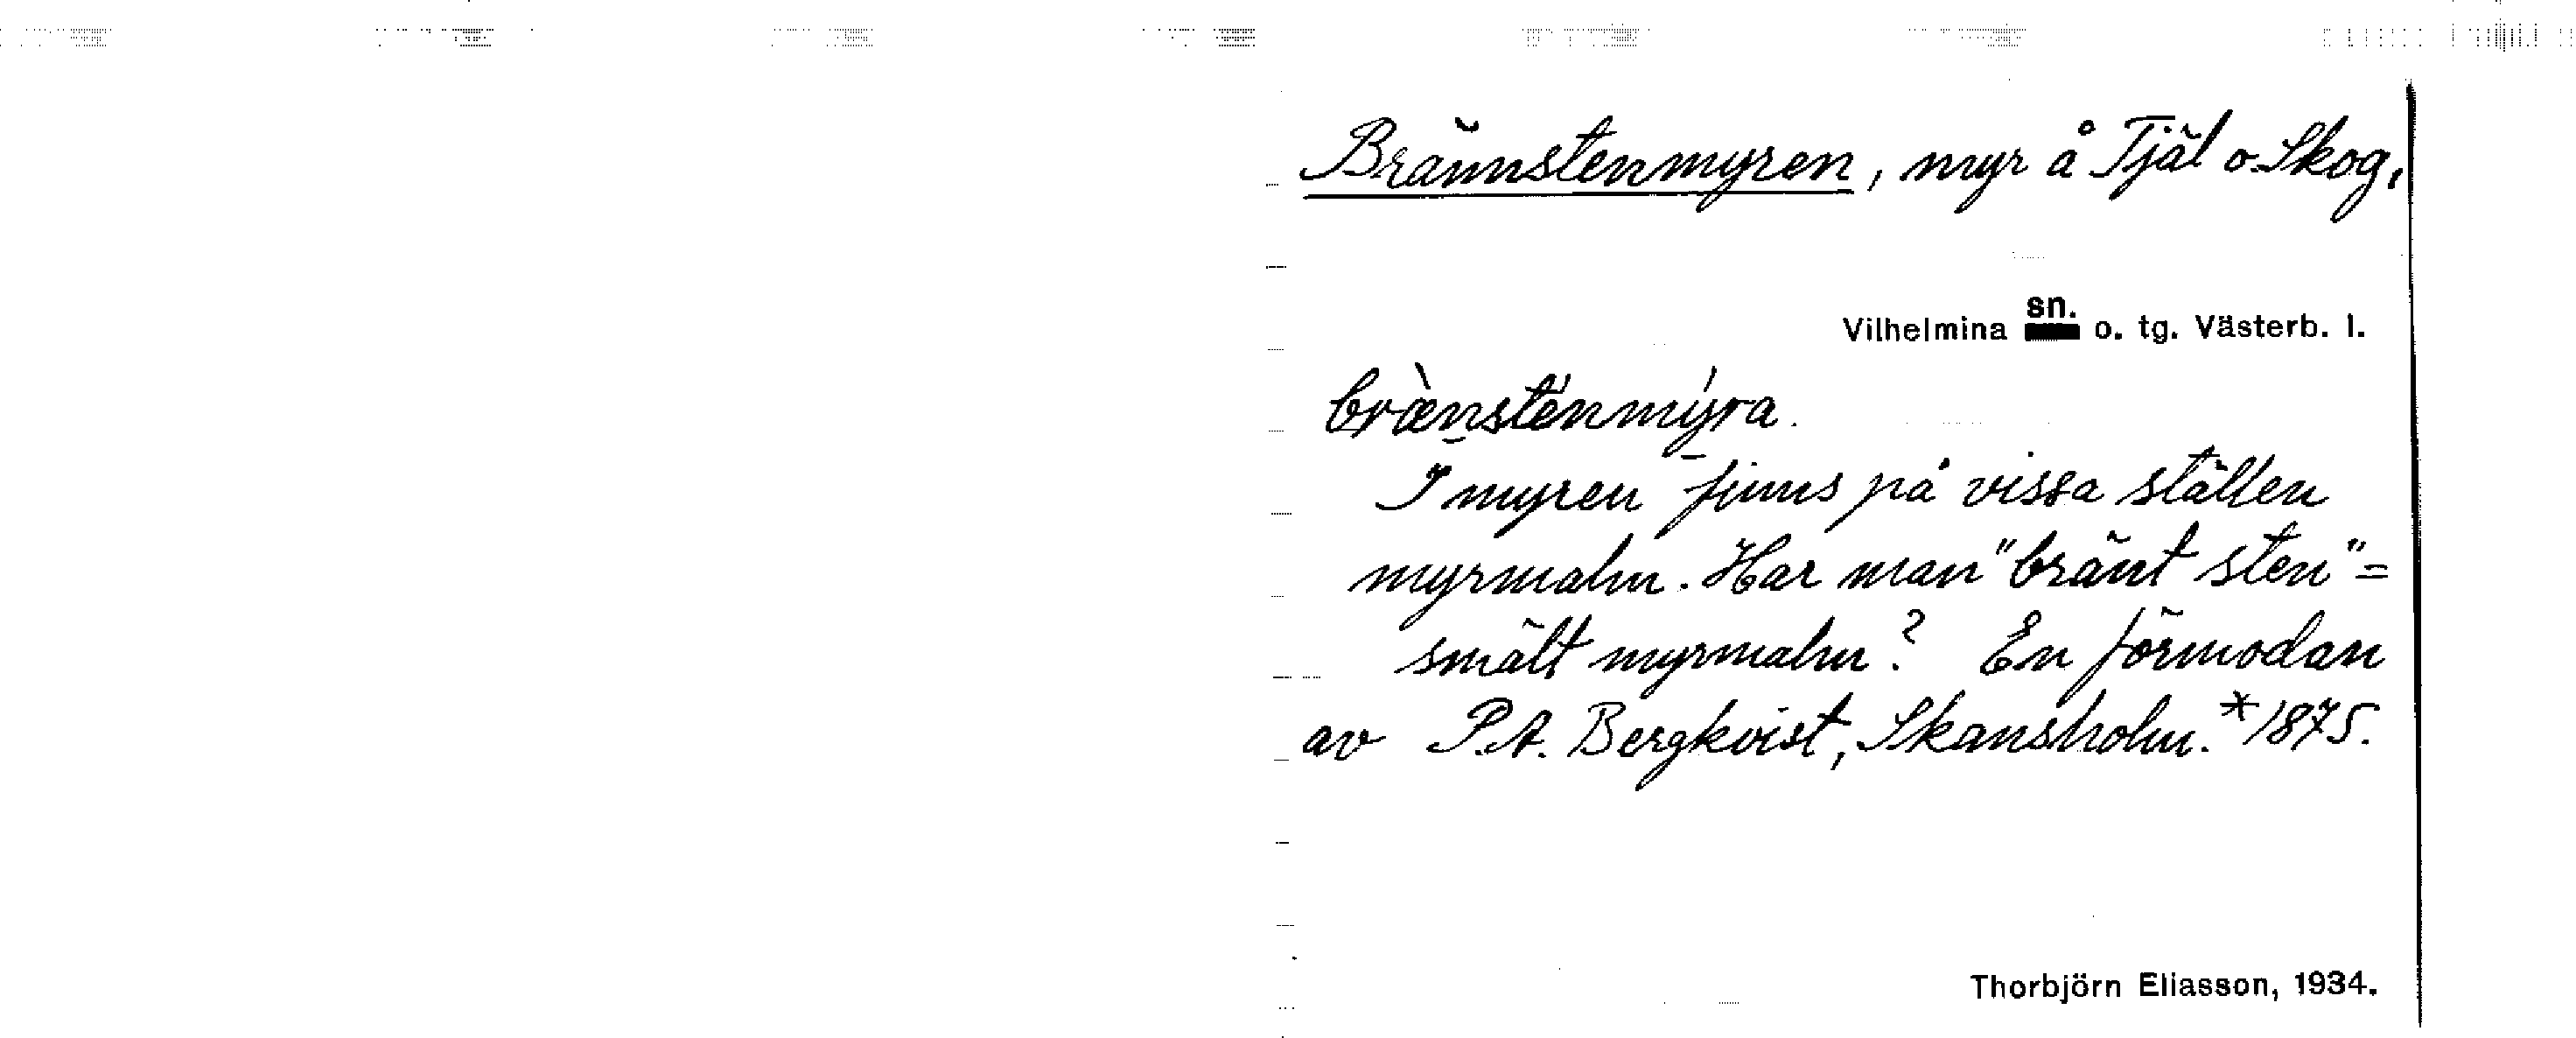 Brännstenmyren, myr å Tjäl o. Skog,
sn.
Vilhelmina o. tg. Västerb. l.
brænstenmyra.
I myren finns på vissa ställen
myrmalm. Har man "bränt sten" =
smält myrmalm? En förmodan
av P.A. Bergkvist, Skansholm. *1875.
Thorbjörn Eliasson, 1934.